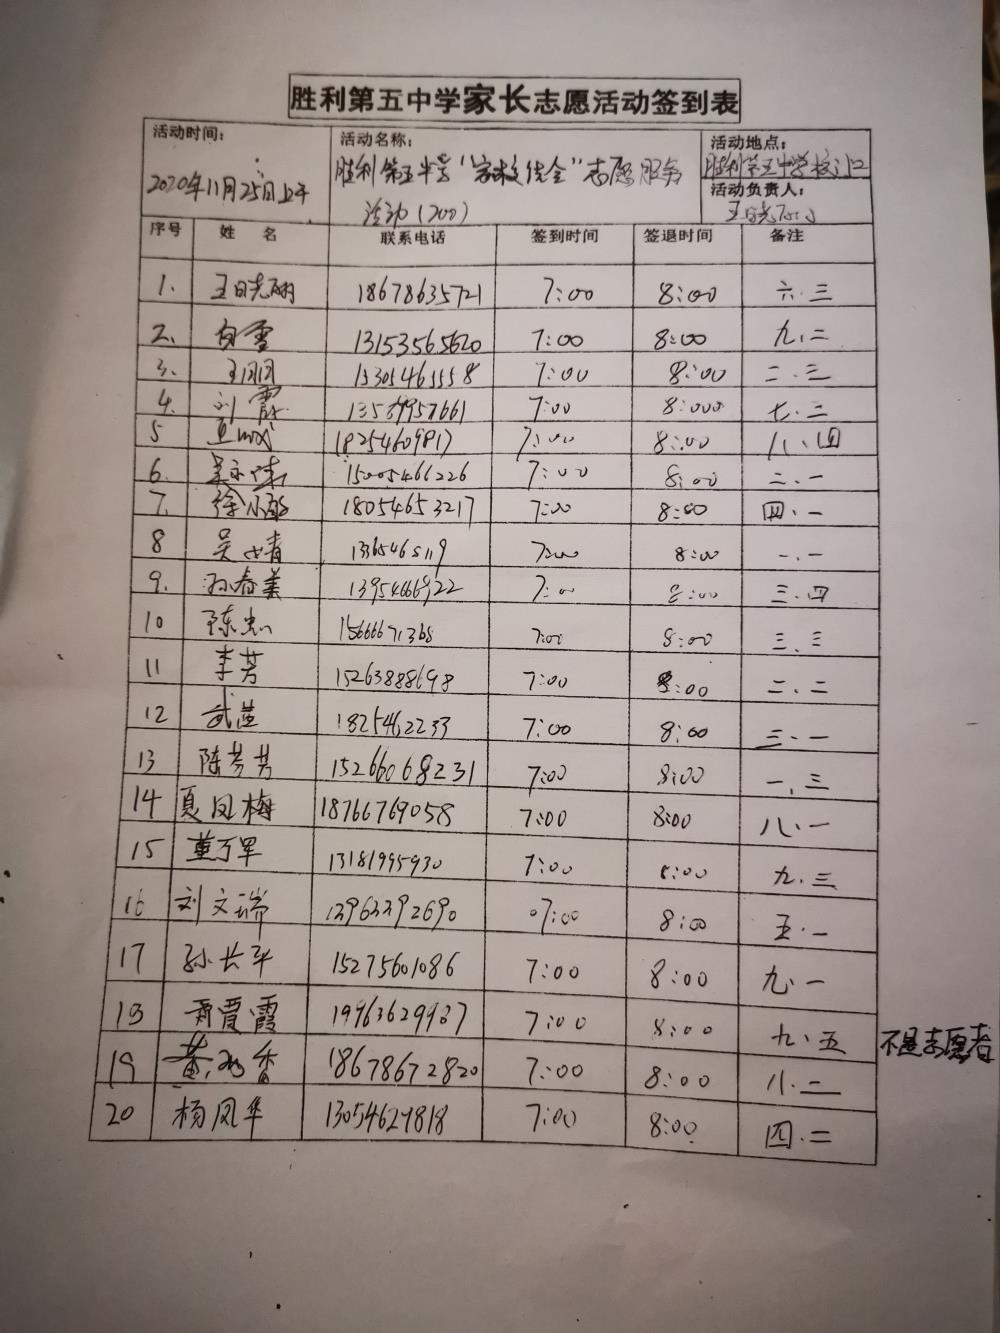 胜利第五中学家长志愿活动签到表
活动时间： 活动名称： 活动地点：
2020年11月25日上午 胜利第五中学“家校使会”志愿服务 胜利第五中学校门口
活动(200) 活动负责人：
王晓
序号 姓 名 联系电话 签到时间 签退时间 备注
1. 王晓丽 18678635721 7:00 8:00 六.三
2. 白雪 13153565620 7:00 8:00 九.二
3. 王 15305465558 7:00 8:00 二.三
4. 刘霞 13539957661 7:00 8:000 七.二
5 18254609817 7:00 8:00 八.四
6. 15005466226 7:00 8:00 二.一
7. 徐小 18054653217 7:00 8:00 四.一
8 吴 青 1336465119 7:00 8:00 一.一
9. 孙春美 13954666922 7:00 8:00 三.四
10 陈忠 15666671368 7:00 8:00 三.三
11 李芳 15263888698 7:00 8:00 二.二
12 武莲 1825462233 7:00 8:00 三.一
13 陈芳芳 15266068231 7:00 8:00 一.三
14 夏凤梅 18766769058 7:00 8:00 八.一
15 董万军 13181995930 7:00 8:00 九.三
16 刘文瑞 13963392690 07:00 8:00 五.一
17 孙长平 15275601086 7:00 8:00 九.一
18 贾霞 19963629987 7:00 8:00 九.五 不是志愿者
19 黄 香 18678672820 7:00 8:00 八.二
20 杨凤华 13054629818 7:00 8:00 四.二